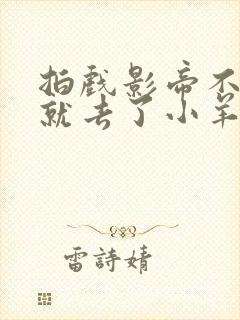 拍戏影帝不
就去了小羊
雷詩婧